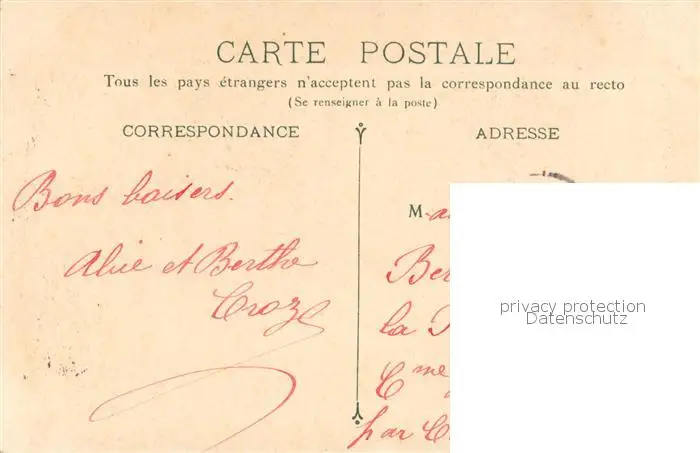 CARTE POSTALE
Tous les pays étrangers n'acceptent pas la correspondance au recto
(Se renseigner à la poste)
CORRESPONDANCE
Bons baisers.
Alice et Berthe
Croze
ADRESSE
M
Ber
la
Cme
par C
privacy protection
Datenschutz